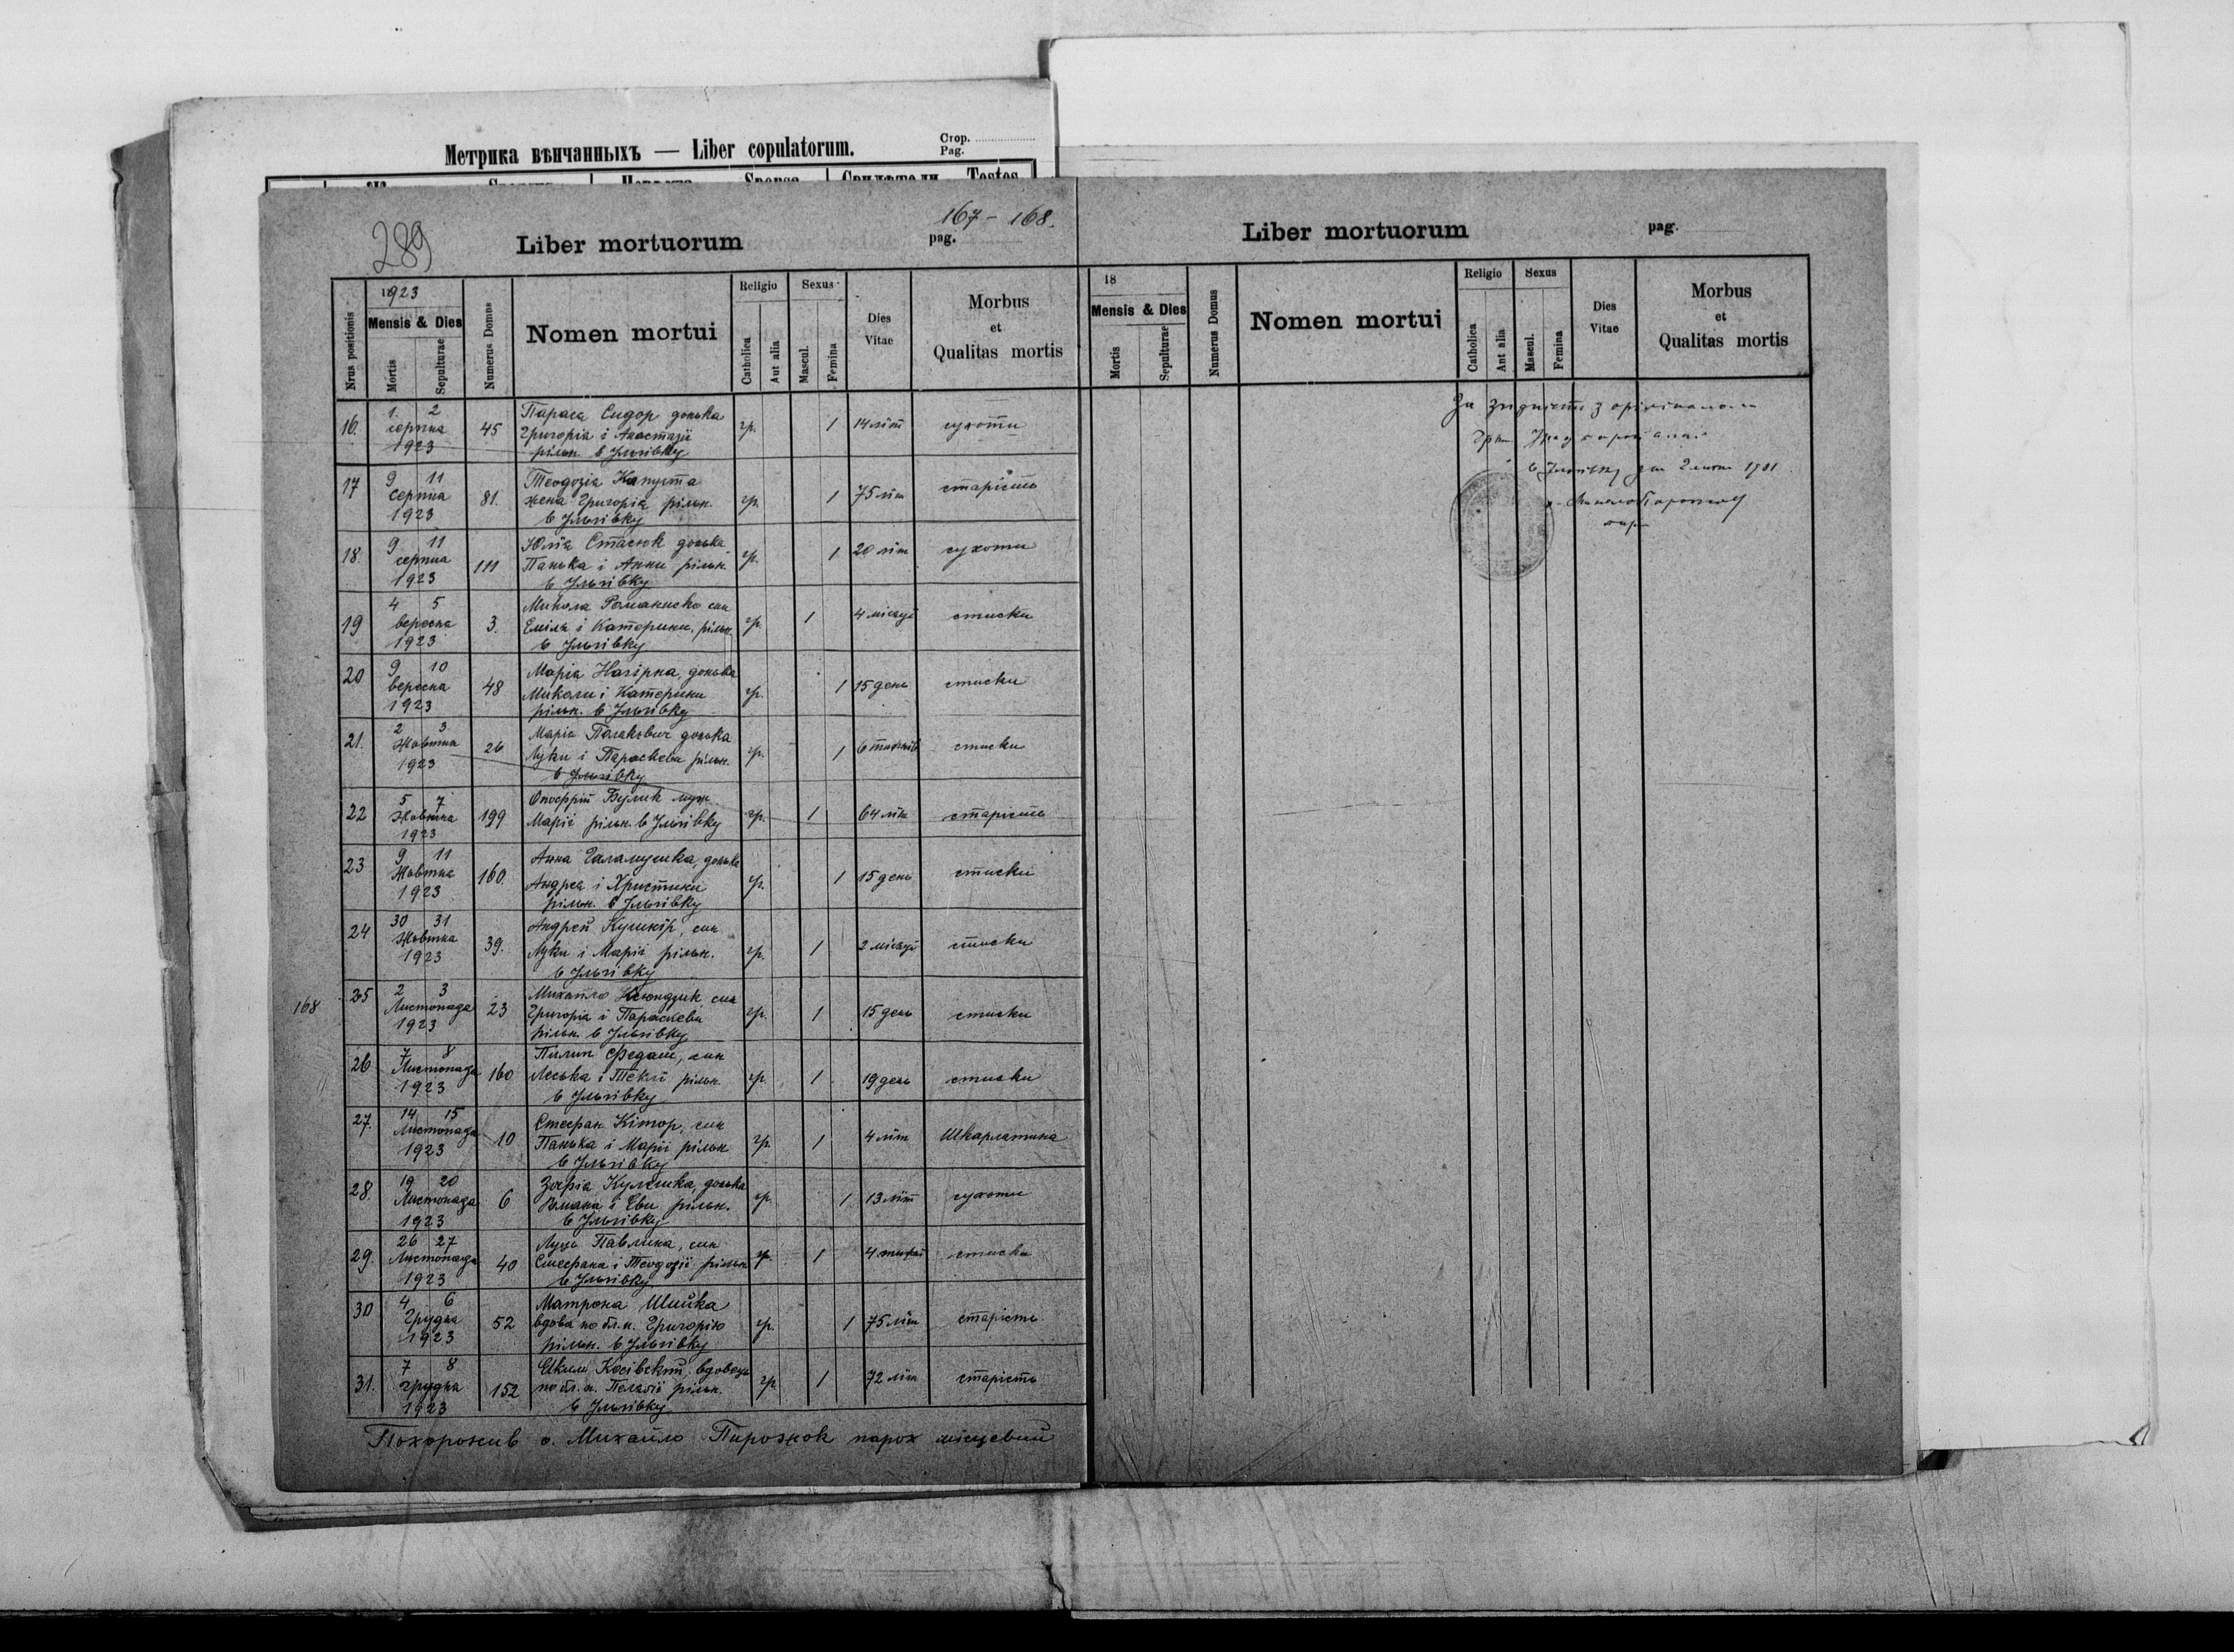 Метрика вѣнчанныхъ — Liber copulatorum.
Стор.
Pag.
289
167 - 168.
Liber mortuorum
pag.
1923
Nrus positionis
Mensis & Dies
Mortis
Sepulturae
Numerus Domus
Nomen mortui
Religio
Catholica
Aut alia
Sexus
Mascul.
Femina
Dies
Vitae
Morbus
et
Qualitas mortis
16. 1. 2 серпня 1923 45 Параса Сидор донька
Григорія і Анастазії гр. 1 14 літ сухоти
рільн. в Ільківку
17 9 11 серпня 1923 81. Теодозія Капуста
жена Григорія рільн. гр. 1 75 літ старість
в Ільківку
18. 9 11 серпня 1923 111 Юлія Стасюк донька
Панька і Анни рільн. гр. 1 20 літ сухоти
в Ільківку
19 4 5 вересня 1923 3. Микола Романиско син
Еміля і Катерини, рільн. гр. 1 4 місяці стиски
в Ільківку
20 9 10 вересня 1923 48 Марія Нагірна, донька
Миколи і Катерини гр. 1 15 день стиски
рільн. в Ільківку
21. 2 3 Жовтня 1923 26 Марія донька
Луки і Параскеви рільн. гр. 1 6 стиски
в Ільківку
22 5 7 Жовтня 1923 199 Онофрій Булик муж
Марії рільн. в Ільківку гр. 1 64 літ старість
23 9 11 Жовтня 1923 160. Анна Галамушка, донька
Андрея і Христини гр. 1 15 день стиски
рільн. в Ільківку
24 30 31 Жовтня 1923 39. Андрей Кушнір, син
Луки і Марії рільн. гр. 1 2 місяці стиски
в Ільківку
168
25 2 3 Листопада 1923 23 Михайло син
Григорія і Параскеви гр. 1 15 день стиски
рільн. в Ільківку
26 7 8 Листопада 1923 160 Пилип Федаш, син
Леська і Теклі рільн. гр. 1 19 день стиски
в Ільківку
27. 14 15 Листопада 1923 10 Стефан Кітор, син
Панька і Марії рільн. гр. 1 4 літ Шкарлатина
в Ільківку
28. 19 20 Листопада 1923 6 Зофія Кулешка, донька
Романа і Еви рільн. гр. 1 13 літ сухоти
в Ільківку
29. 26 27 Листопада 1923 40 Луць Павлика, син
Стефана і Теодозії рільн. гр. 1 4 стиски
в Ільківку
30 4 6 Грудня 1923 52 Матрона Шийка
вдова по бл. п. Григорію гр. 1 75 літ старість
рільн. в Ільківку
31. 7 8 грудня 1923 152 Яким Косівский вдовець
по бл. п. Пелагії рільн. гр. 1 72 літ старість
в Ільківку
Похоронив о. Михайло Пирожок парох місцевий
Liber mortuorum
pag.
18
Mensis & Dies
Mortis
Sepulturae
Numerus Domus
Nomen mortui
Religio
Catholica
Aut alia
Sexus
Mascul.
Femina
Dies
Vitae
Morbus
et
Qualitas mortis
За згідність з оріґіналом